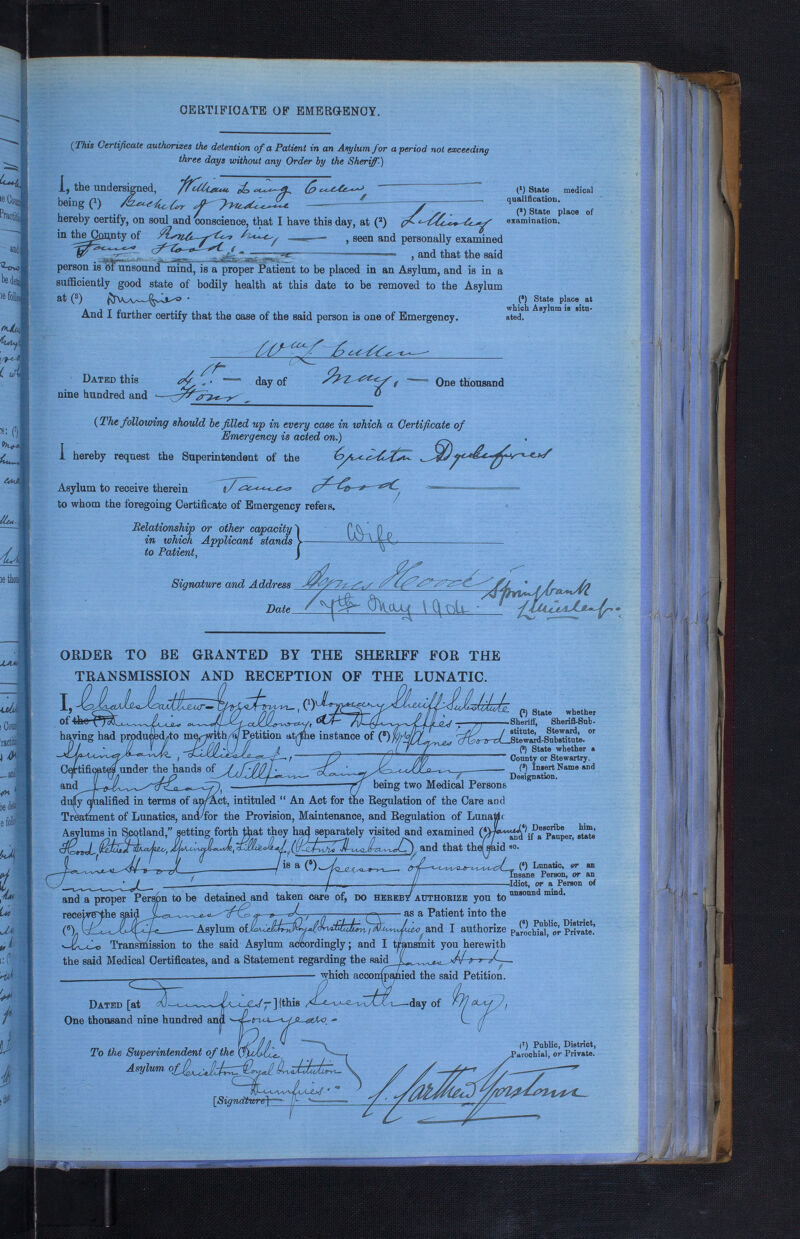 CERTIFICATE OF EMERGENCY.
(This Certificate authorizes the detention of a Patient in an Asylum for a period not exceeding
three days without any Order by the Sheriff.)
I, the undersigned, William Laing Cullen
being (¹) Bachelor of Medicine
hereby certify, on soul and conscience, that I have this day, at (²) Lilliesleaf
in the County of Roxburghshire, seen and personally examined
James Hood, and that the said
person is of unsound mind, is a proper Patient to be placed in an Asylum, and is in a
sufficiently good state of bodily health at this date to be removed to the Asylum
at (³) Dumfries.
And I further certify that the case of the said person is one of Emergency.
(¹) State medical
qualification.
(²) State place of
examination.
(³) State place at
which Asylum is situ-
ated.
Wm L Cullen
DATED this 4th day of May, One thousand
nine hundred and Four.
(The following should be filled up in every case in which a Certificate of
Emergency is acted on.)
I hereby request the Superintendent of the Crichton
Asylum to receive therein James Hood,
to whom the foregoing Certificate of Emergency refers.
Relationship or other capacity
in which Applicant stands
to Patient,
Wife
Signature and Address Agnes Hood Springbank
Lilliesleaf.
Date 7th May 1904.
ORDER TO BE GRANTED BY THE SHERIFF FOR THE
TRANSMISSION AND RECEPTION OF THE LUNATIC.
I, Charles Carthew-Yorstoun, (¹) Honorary Sheriff Substitute
of the Dumfries and Galloway, at Dumfries,
having had produced to me, with a Petition at the instance of (³) Agnes Hood
Springbank, Lilliesleaf,
Certificates under the hands of William Laing Cullen,
and John Keay, being two Medical Persons
duly qualified in terms of an Act, intituled "An Act for the Regulation of the Care and
Treatment of Lunatics, and for the Provision, Maintenance, and Regulation of Lunatic
Asylums in Scotland," setting forth that they had separately visited and examined (⁴) James
Hood, Retired draper, Springbank, Lilliesleaf, (Petnrs Husband), and that the said
James Hood is a (⁵) person of unsound
mind,
and a proper Person to be detained and taken care of, DO HEREBY AUTHORIZE you to
receive the said James Hood as a Patient into the
(⁶) Public Asylum of Crichton Royal Institution, Dumfries, and I authorize
his Transmission to the said Asylum accordingly; and I transmit you herewith
the said Medical Certificates, and a Statement regarding the said James Hood
which accompanied the said Petition.
(¹) State whether
Sheriff, Sheriff-Sub-
stitute, Steward, or
Steward-Substitute.
(²) State whether a
County or Stewartry.
(³) Insert Name and
Designation.
(⁴) Describe him,
and if a Pauper, state
so.
(⁵) Lunatic, or an
Insane Person, or an
Idiot, or a Person of
unsound mind.
(⁶) Public, District,
Parochial, or Private.
DATED [at Dumfries] this Seventh day of May,
One thousand nine hundred and four years.
To the Superintendent of the Public
Asylum of Crichton Royal Institution
Dumfries.
(⁷) Public, District,
Parochial, or Private.
[Signature] C. Carthew Yorstoun